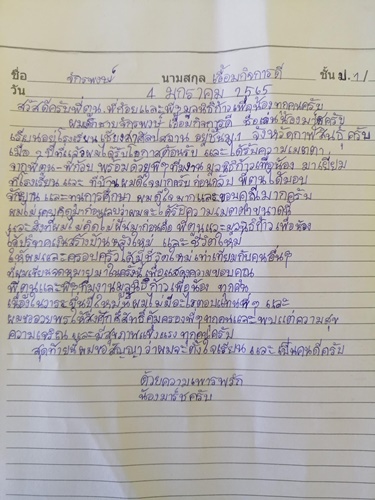 ชื่อ จักรพงษ์ นามสกุล เอื้อมกิจการดี ชั้น ป.1/
วัน 4 มกราคม 2565
สวัสดีครับพี่ตูน พี่ก้อยและพี่ๆมูลนิธิก้าวเพื่อน้องทุกคนครับ
ผมเด็กชายจักรพงษ์ เอื้อมกิจการดี ชื่อเล่นน้องมาร์ชครับ
เรียนอยู่โรงเรียน อยู่ชั้นม.1 จังหวัดกาฬสินธุ์ครับ
เมื่อ 2 ปีที่แล้วผมได้รับโอกาสต้อนรับ และได้รับความเมตตา
จากพี่ตูน-พี่ก้อย พร้อมด้วยพี่ๆทีมงานมูลนิธิก้าวเพื่อน้อง มาเยี่ยม
ที่โรงเรียนและ ที่บ้านผมดีใจมากครับ ก่อนกลับ พี่ตูนได้มอบ
จักยานและทุนการศึกษา ผมดีใจมากและขอบคุณมากครับ
ผมไม่เคยคิดมาก่อนเลยว่าผมจะได้รับความเมตตาขนาดนี้
และสิ่งที่ผมไม่คิดไม่ฝันมาก่อนคือ พี่ตูนและมูลนิธิก้าวเพื่อน้อง
ได้บริจาคเงินสร้างบ้านหลังใหม่ และชีวิตใหม่
ให้ผมและครอบครัวได้มีชีวิตใหม่เท่าเทียมกับคนอื่นๆ
ที่ผมเขียนจดหมายมาในครั้งนี้เพื่อแสดงความขอบคุณ
พี่ตูนและพี่ๆทีมงานมูลนิธิก้าวเพื่อน้อง ทุกคน
เนื่องในวาระขึ้นปีใหม่นี้ผมไม่มีอะไรตอบแทนพี่ๆ และ
ผมขออวยพรให้สิ่งศักดิ์สิทธิ์คุ้มครองพี่ๆทุกคนและพบแต่ความสุข
ความเจริญ และมีสุขภาพแข็งแรง ทุกคนครับ
สุดท้ายนี้ผมขอสัญญาว่าผมจะตั้งใจเรียน และเป็นคนดีครับ
ด้วยความเคารพรัก
น้องมาร์ชครับ